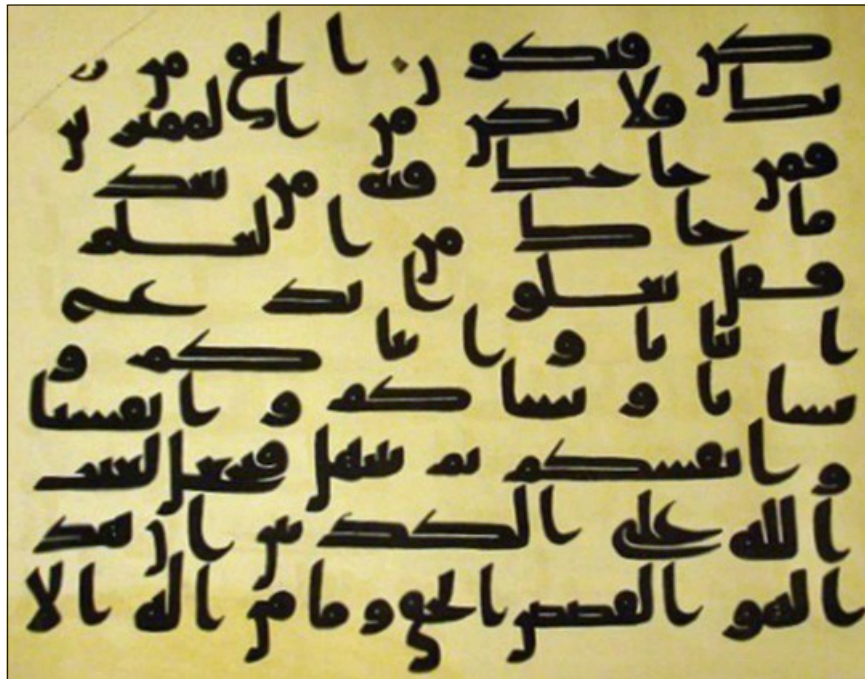 كن فيكون الحق من ر
بك فلا تكن من الممترين
فمن حاجك فيه من بعد
ما جاك من العلم
فقل تعلوا ندع
ابنانا وابناكم و
نسانا ونساكم وانفسنا
وانفسكم ثم نبتهل فنجعل لعنت
الله على الكذبين ان هذ
ا لهو القصص الحق وما من اله الا